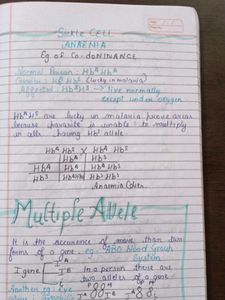 Sickle CELL
ANAEMIA
Eg of Co-doNINANCE
Normal Person : HbᴬHbᴬ
Carrier : HbᴬHbˢ (lucky in malaria)
Affected : HbˢHbˢ → live normally
except under oxygen
HbᴬHbˢ are lucky in malaria prone areas
because parasite is unable to multiply
in cells having Hbˢ allele.
HbᴬHbˢ X HbᴬHbˢ
Hbᴬ Hbˢ
Hbᴬ
Hbˢ
Anaemia
Multiple Allele
It is the occurence of more than two
forms of a gene. eg: ABO blood Group
System
I gene Iᴬ
Iᴮ In a person there are
two alleles of a gene
Another eg: Eye